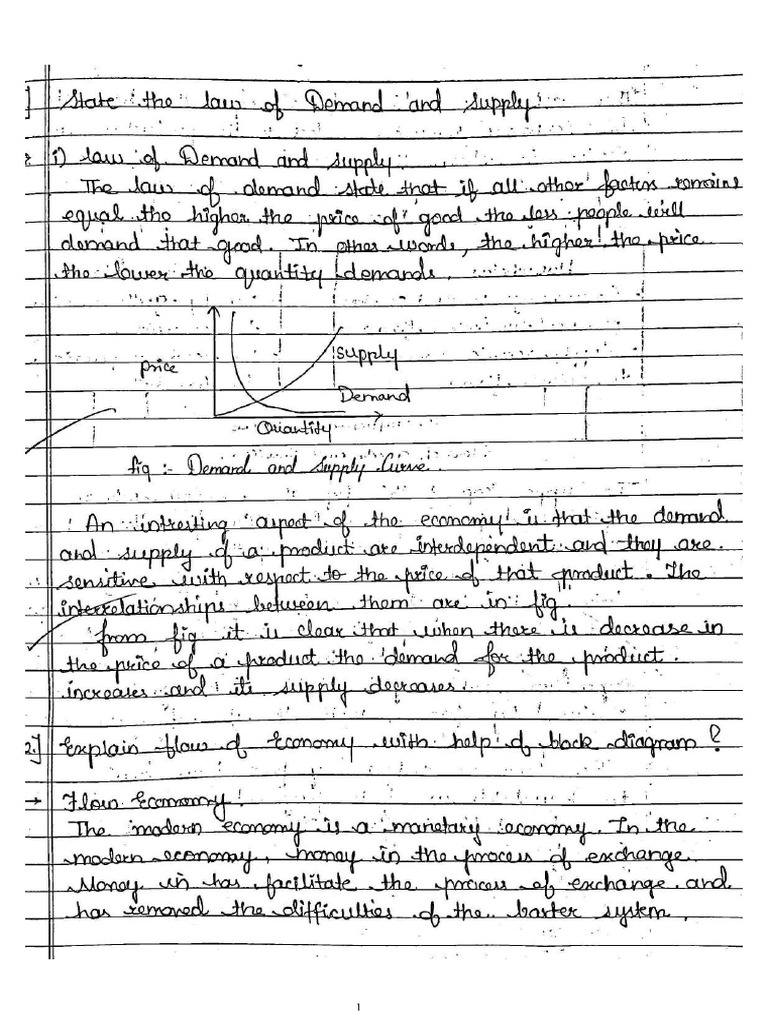 ] State the law of Demand and supply.
i) law of Demand and supply.
The law of demand state that if all other factors remains
equal the higher the price of good the less people will
demand that good. In other words, the higher the price
the lower the quantity demands.
price
supply
Demand
Quantity
fig :- Demand and supply Curve.
An intresting aspect of the economy is that the demand
and supply of a product are interdependent and they are
sensitive with respect to the price of that product. The
interrelationships between them are in fig.
from fig it is clear that when there is decrease in
the price of a product the demand for the product
increases and its supply decreases.
2.] Explain flow of Economy with help of block diagram?
→ Flow Economy!
The modern economy is a monetary economy. In the
modern economy, money in the process of exchange.
Money has facilitate the process of exchange and
has removed the difficulties of the barter system.
1